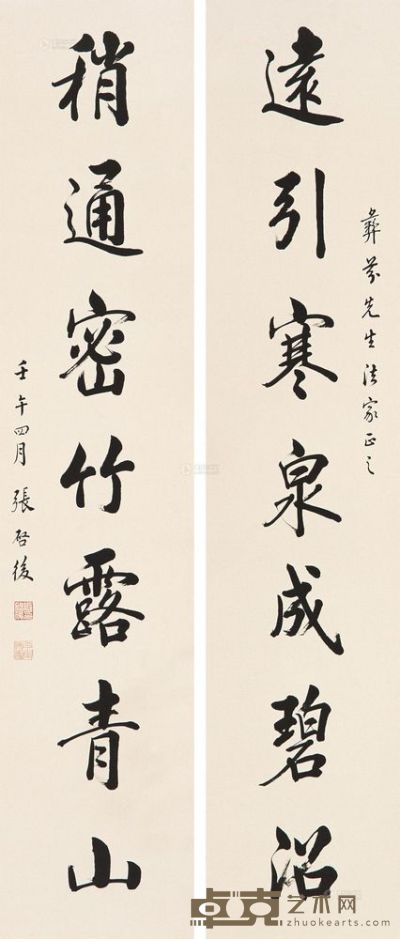 彝芬先生法家正之
遠引寒泉成碧沼
稍通密竹露青山
壬午四月張啓後
卓克艺术网
zhuokearts.com